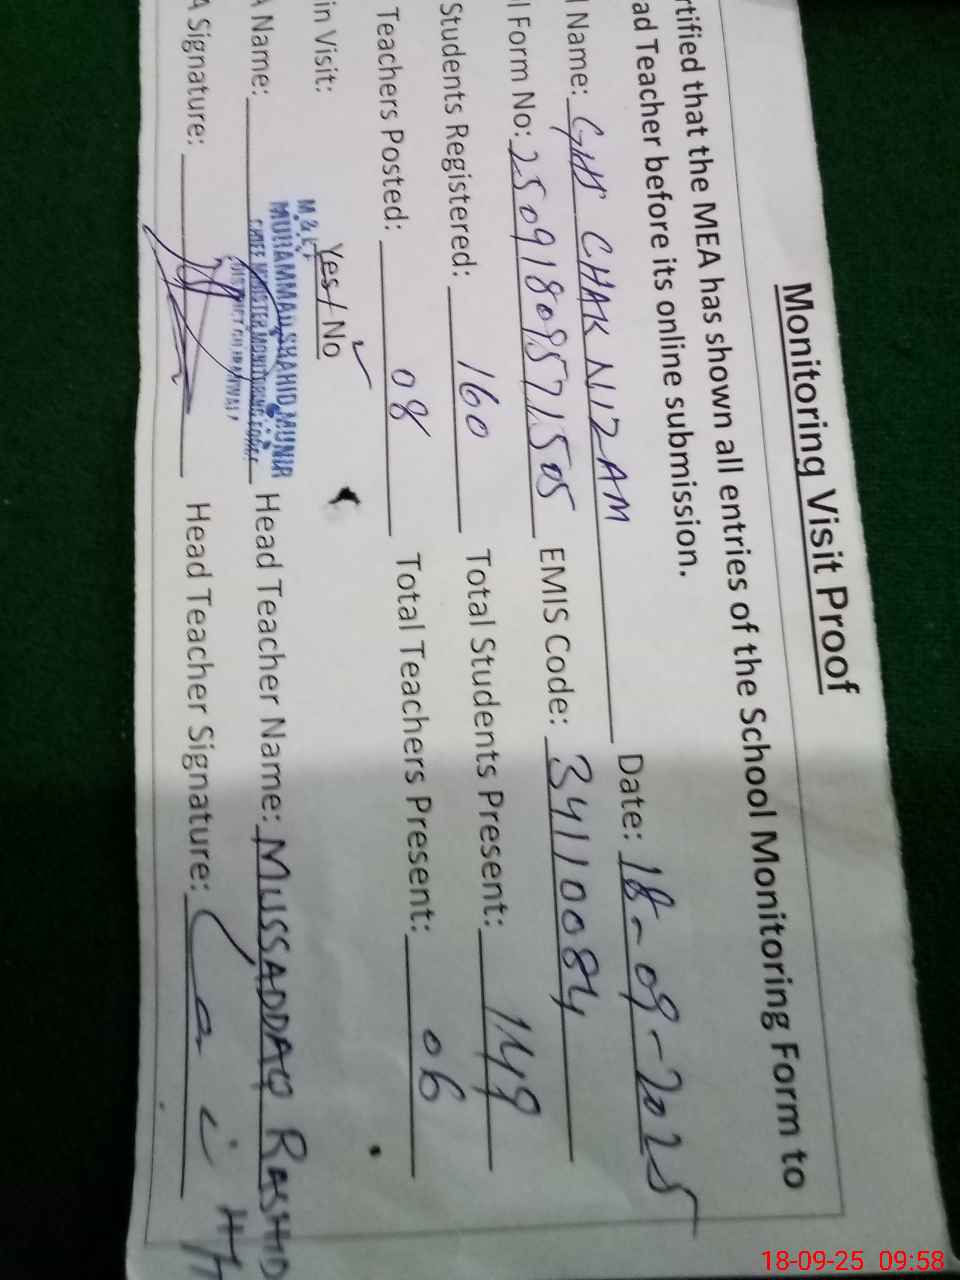 Monitoring Visit Proof
rtified that the MEA has shown all entries of the School Monitoring Form to
ad Teacher before its online submission.
l Name: GHS CHAK NIZAM Date: 18-09-2025
l Form No: 250918095715 05 EMIS Code: 34110084
Students Registered: 160 Total Students Present: 149
Teachers Posted: 08 Total Teachers Present: 06
in Visit: Yes / No
A Name: Head Teacher Name: MUSSADDAQ RASHID
M & E
MUHAMMAD SHAHID MUNIR
CHIEF MINISTER MONITORING FORCE
A Signature: Head Teacher Signature:
18-09-25 09:58